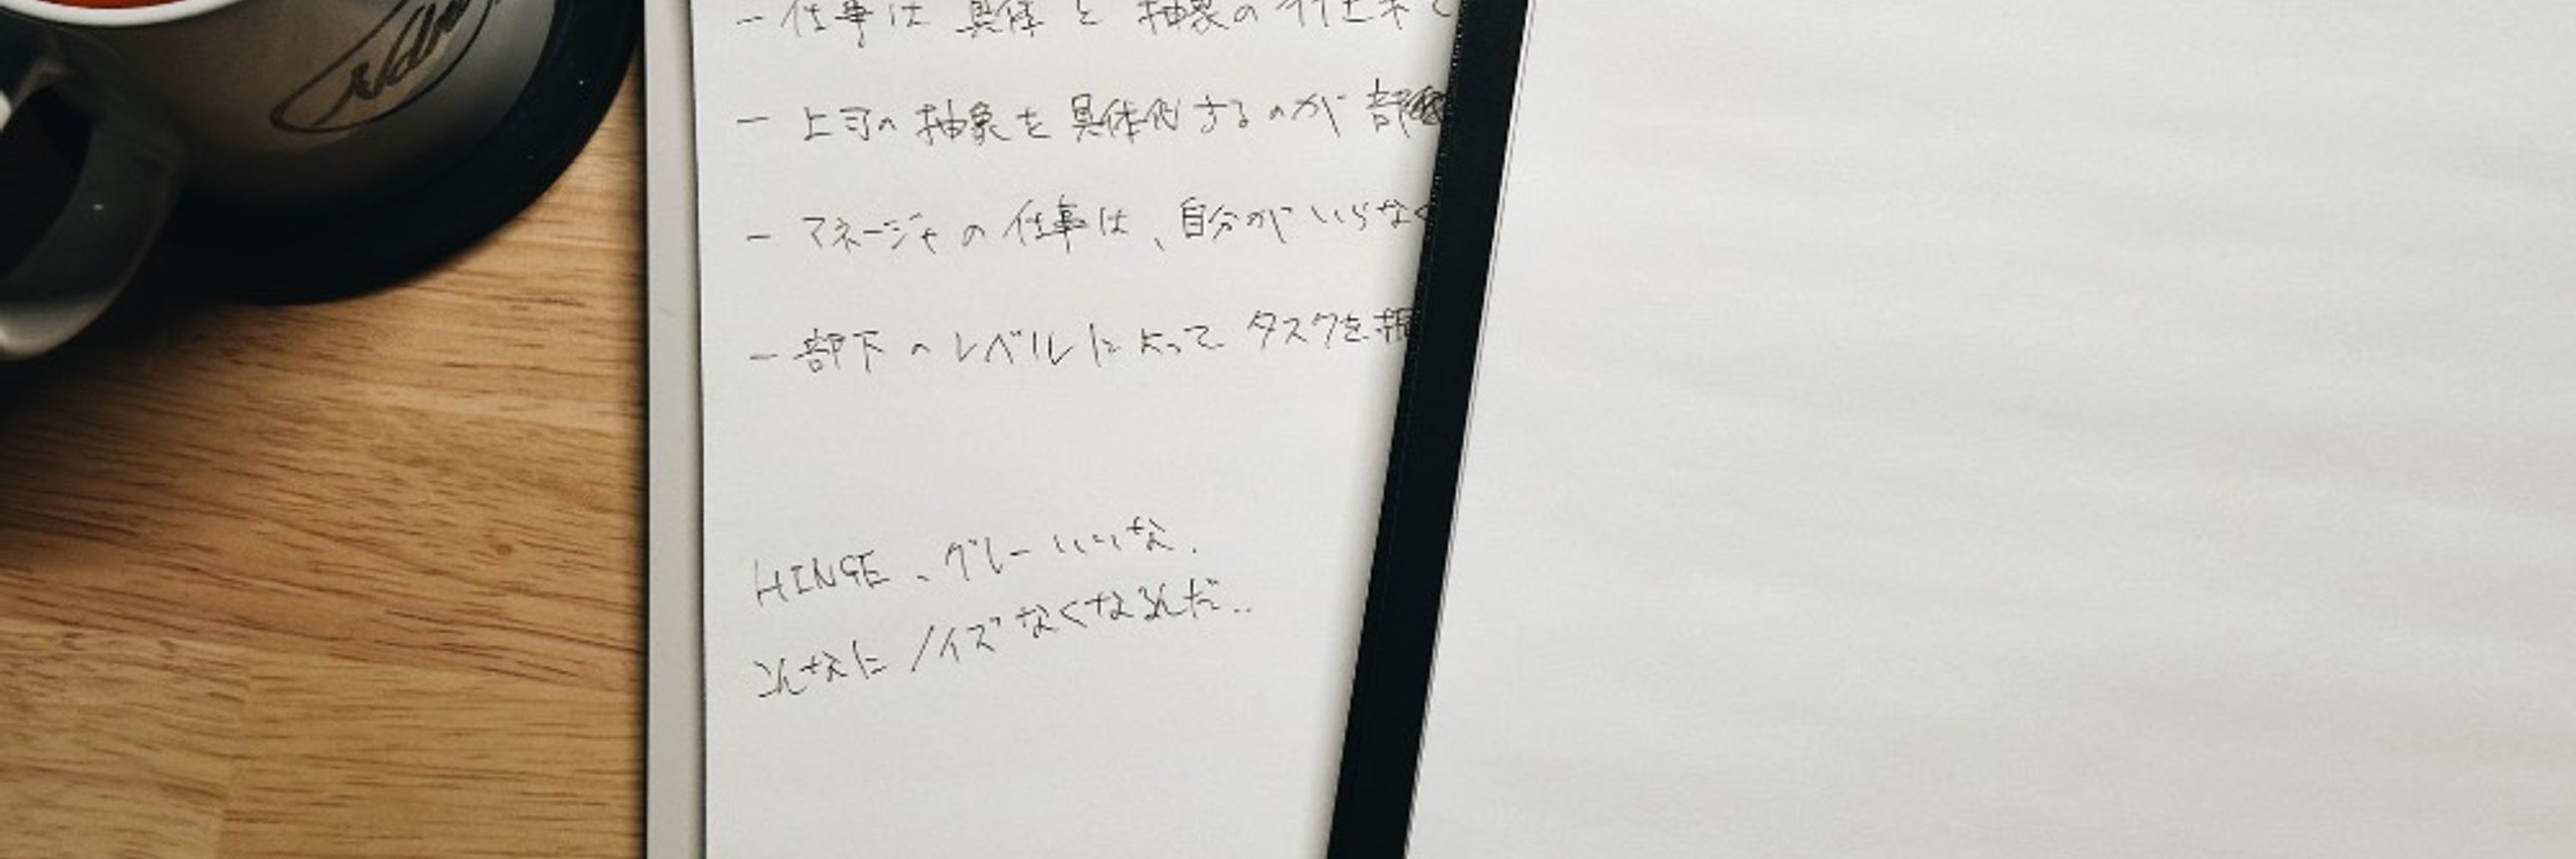 - 仕事は 具体 と 抽象の 行
- 上司の 抽象を 具体化するのが 部
- マネージャの 仕事は、自分が いらなく
- 部下の レベルによって タスクを振
HINGE、グレーいいな.
こんなにノイズなくなるんだ..